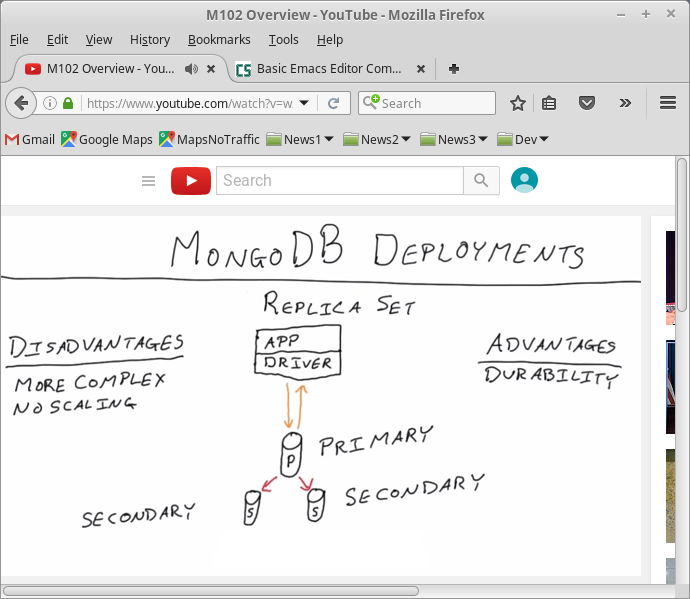 M102 Overview - YouTube - Mozilla Firefox
File Edit View History Bookmarks Tools Help
M102 Overview - You... Basic Emacs Editor Com...
https://www.youtube.com/watch?v=w Search
Gmail Google Maps MapsNoTraffic News1 News2 News3 Dev
Search
MONGODB DEPLOYMENTS
REPLICA SET
DISADVANTAGES
MORE COMPLEX
NO SCALING
APP
DRIVER
ADVANTAGES
DURABILITY
P PRIMARY
S S SECONDARY
SECONDARY